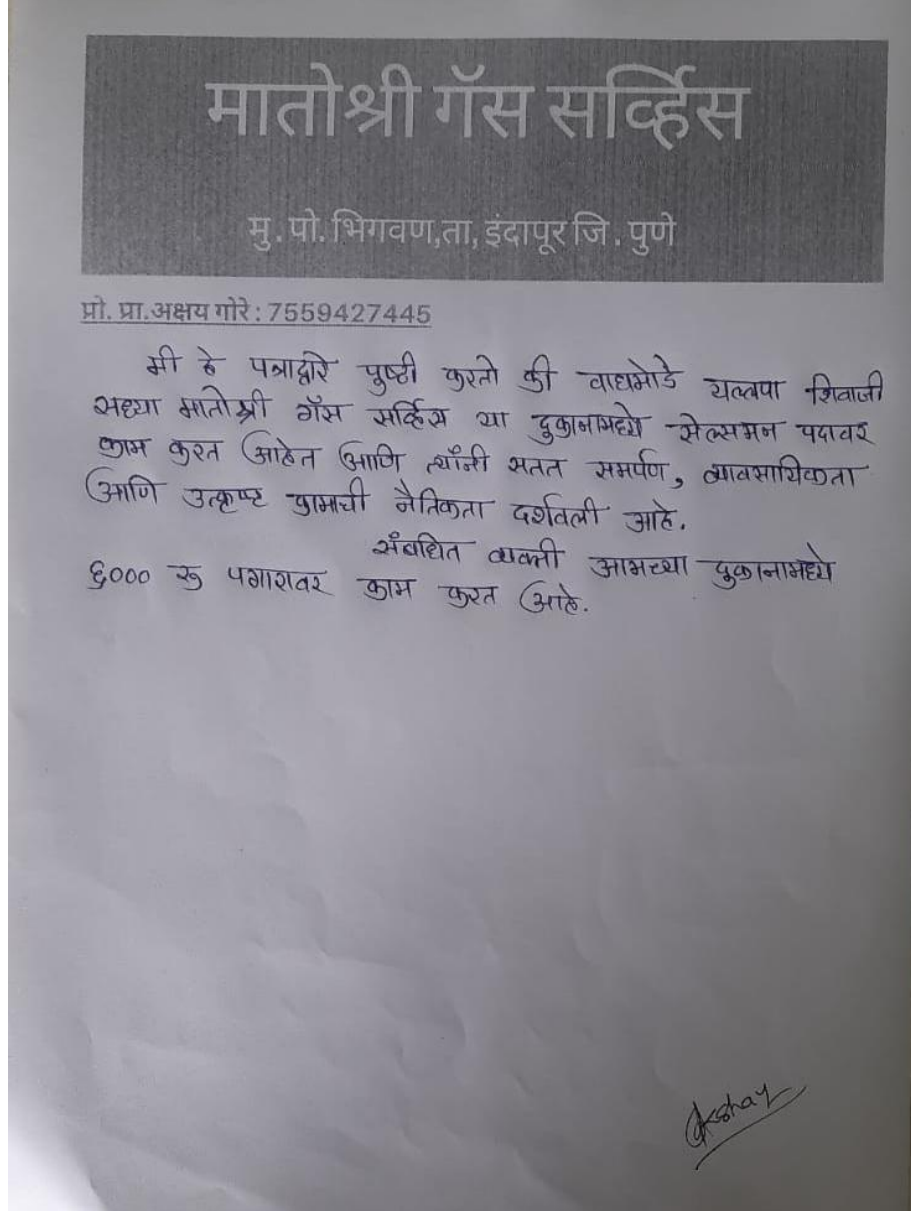 मातोश्री गॅस सर्व्हिस
मु.पो.भिगवण,ता,इंदापूर जि.पुणे
प्रो. प्रा.अक्षय गोरे : 7559427445
मी हे पत्राद्वारे पुष्टी करतो की वाघमोडे यल्लपा शिवाजी
सध्या मातोश्री गॅस सर्व्हिस या दुकानामध्ये सेल्समन पदावर
काम करत आहेत आणि त्याँनी सतत समर्पण, व्यावसायिकता
आणि उत्कृष्ट कामाची नैतिकता दर्शवली आहे.
संबधित व्यक्ती आमच्या दुकानामध्ये
६००० रु पगारावर काम करत आहे.
Akshay